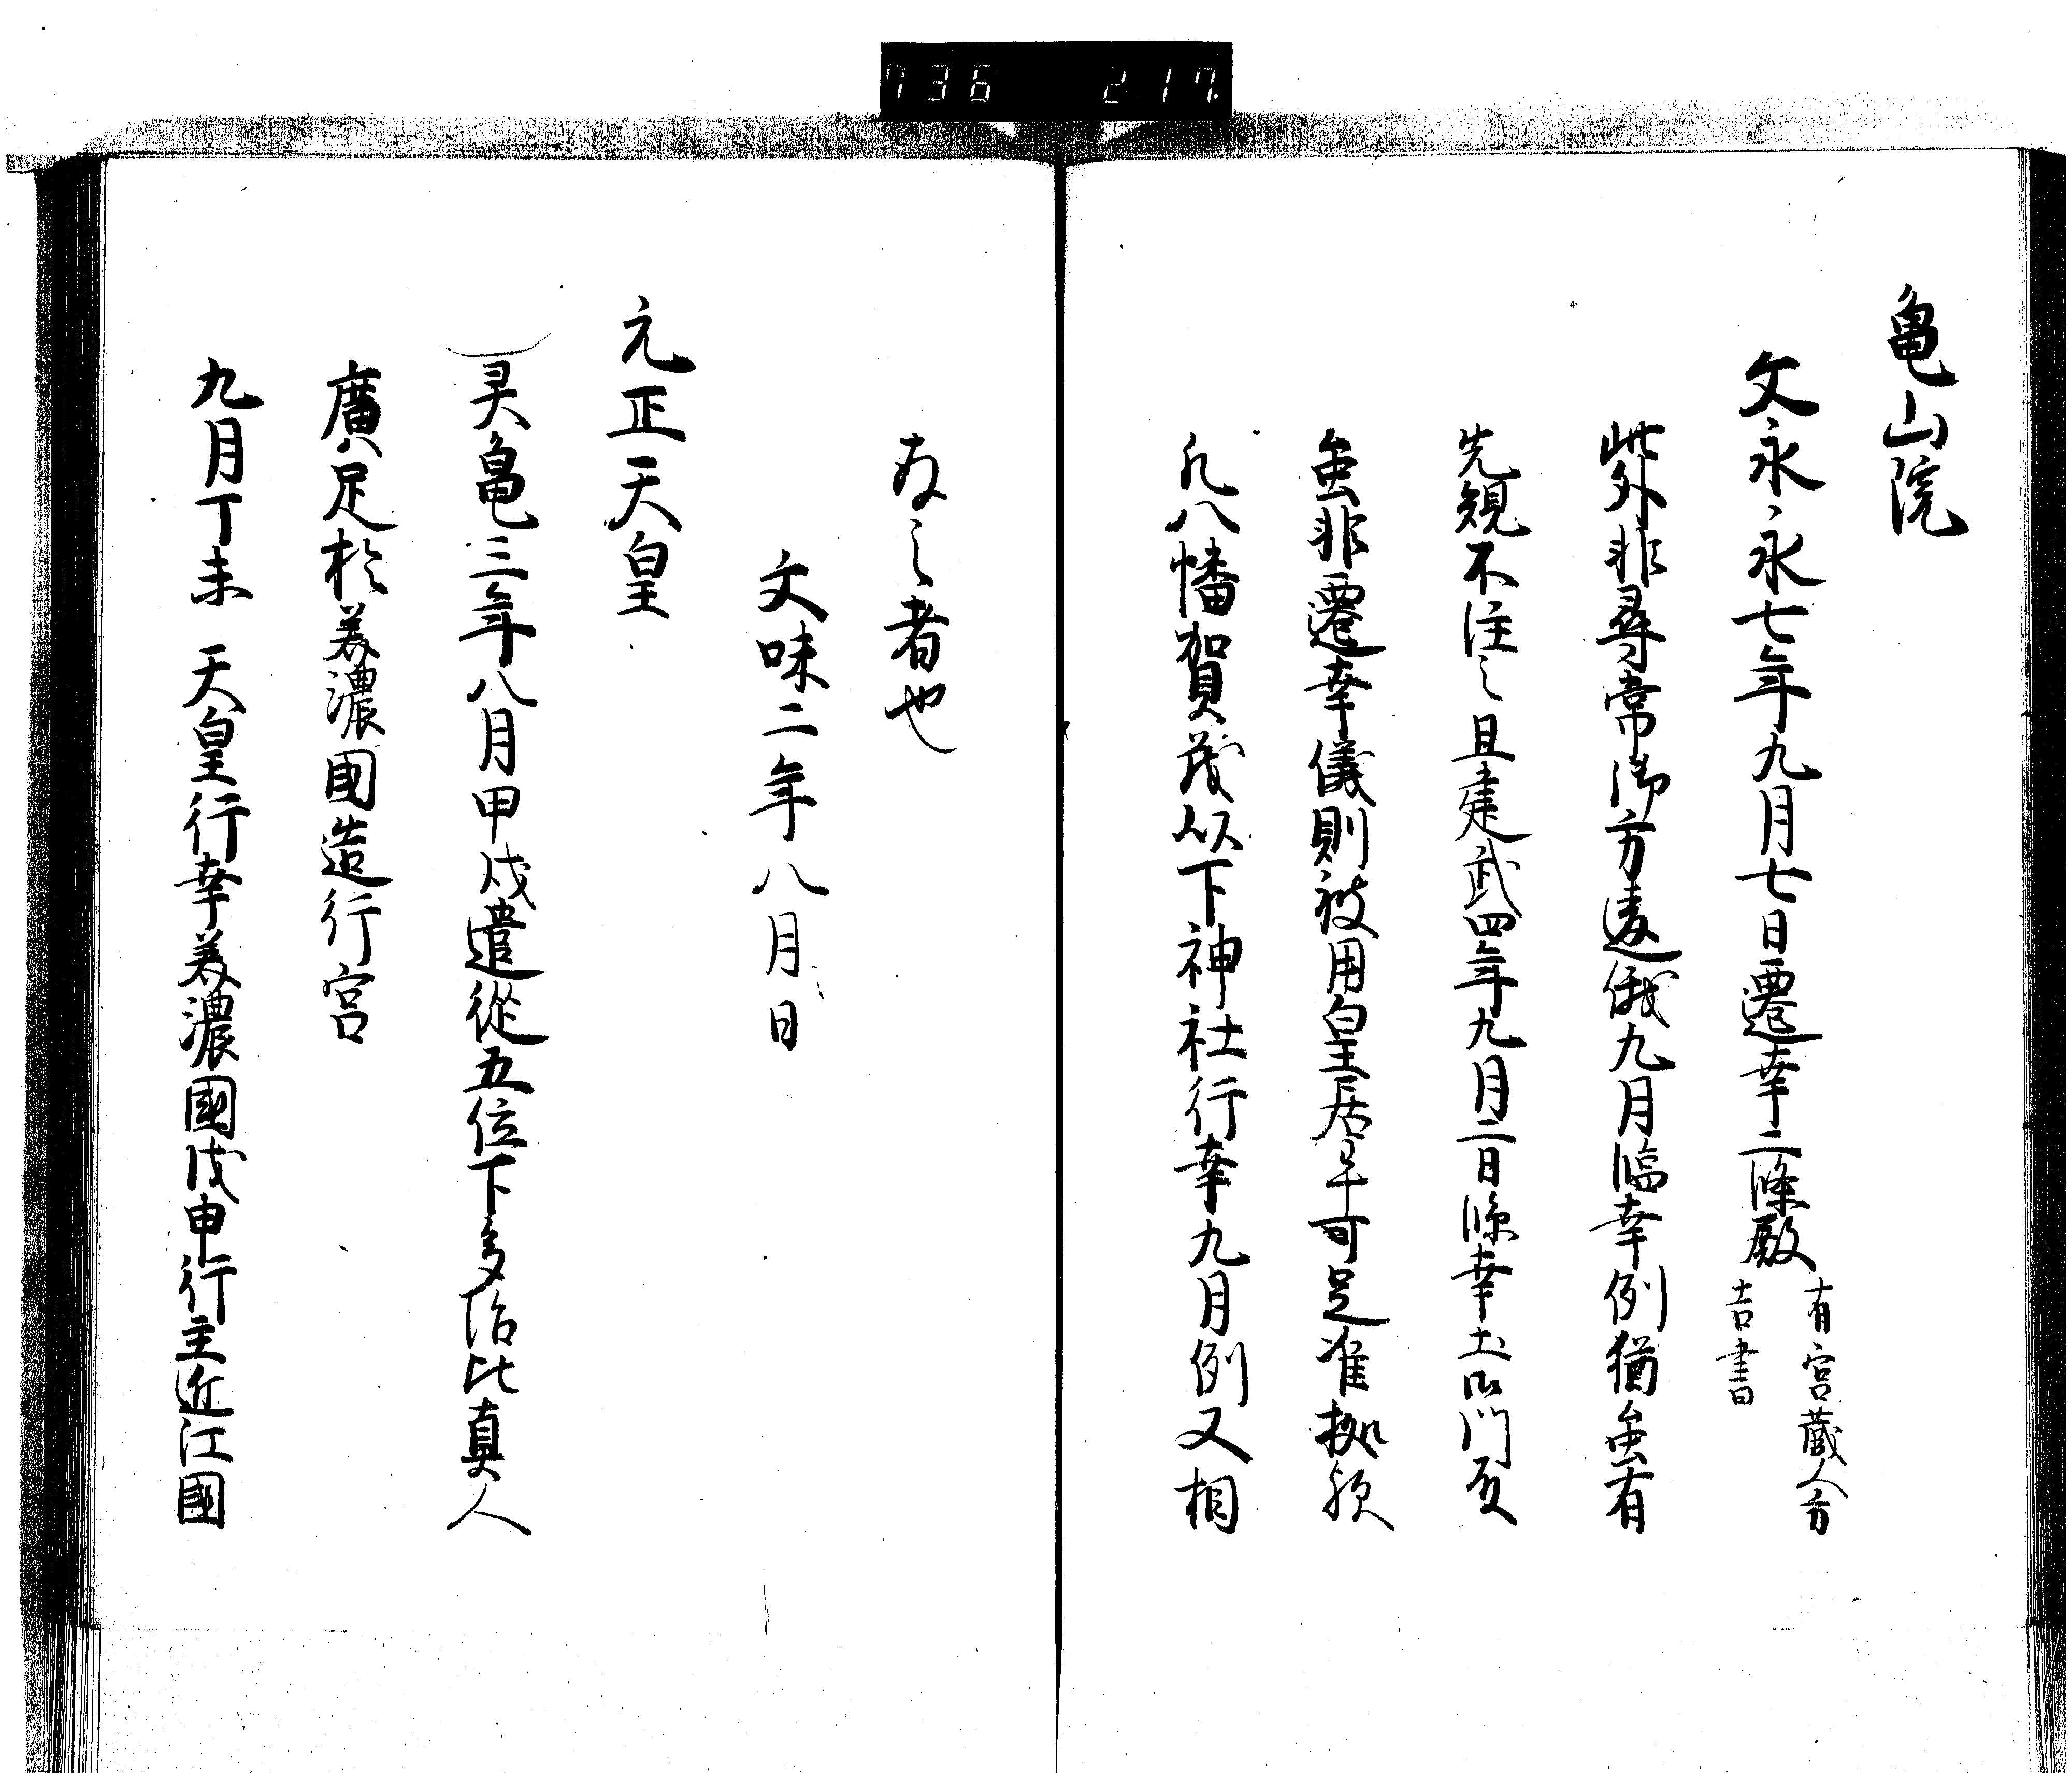 736 217
亀山院
文永永七年九月七日遷幸二條殿
有宮蔵人方
吉書
此外非尋常御方違俄九月臨幸例猶虽有
先規不注之且建武四年九月二日臨幸土御門殿
虽非遷幸儀則被用皇居畢可足准拠須
凡八幡賀茂以下神社行幸九月例又相
存之者也
文味二年八月日
元正天皇
灵亀三年八月甲戌遣從五位下多治比真人
廣足於美濃国造行宮
九月丁未 天皇行幸美濃國戊申行至近江國